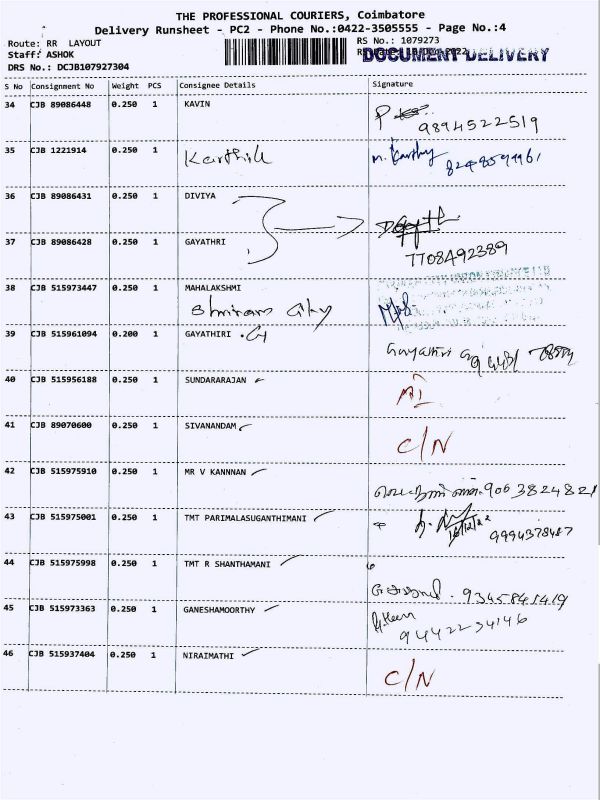 THE PROFESSIONAL COURIERS, Coimbatore
Delivery Runsheet - PC2 - Phone No.:0422-3505555 - Page No.:4
Route: RR LAYOUT
RS No.: 1079273
Staff: ASHOK
DOCUMENT DELIVERY
DRS No.: DCJB107927304
S No Consignment No Weight PCS Consignee Details Signature
34 CJB 89086448 0.250 1 KAVIN
9894522519
35 CJB 1221914 0.250 1 Karthik
M. Karthy
36 CJB 89086431 0.250 1 DIVIYA
37 CJB 89086428 0.250 1 GAYATHRI
7708492389
38 CJB 515973447 0.250 1 MAHALAKSHMI
Shriram City
39 CJB 515961094 0.200 1 GAYATHIRI . G
Gayathiri
40 CJB 515956188 0.250 1 SUNDARARAJAN
41 CJB 89070600 0.250 1 SIVANANDAM
C/N
42 CJB 515975910 0.250 1 MR V KANNNAN
9063824821
43 CJB 515975001 0.250 1 TMT PARIMALASUGANTHIMANI
16/12/22
9994378487
44 CJB 515975998 0.250 1 TMT R SHANTHAMANI
9345841419
45 CJB 515973363 0.250 1 GANESHAMOORTHY
9442234146
46 CJB 515937404 0.250 1 NIRAIMATHI
C/N